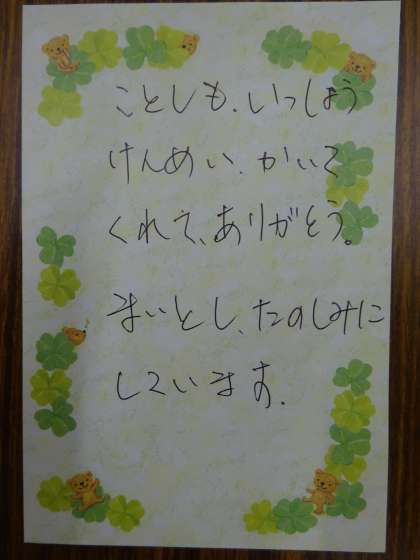 ことしも、いっしょう
けんめい、かいて
くれて、ありがそう。
まいとし、たのしみに
しています。